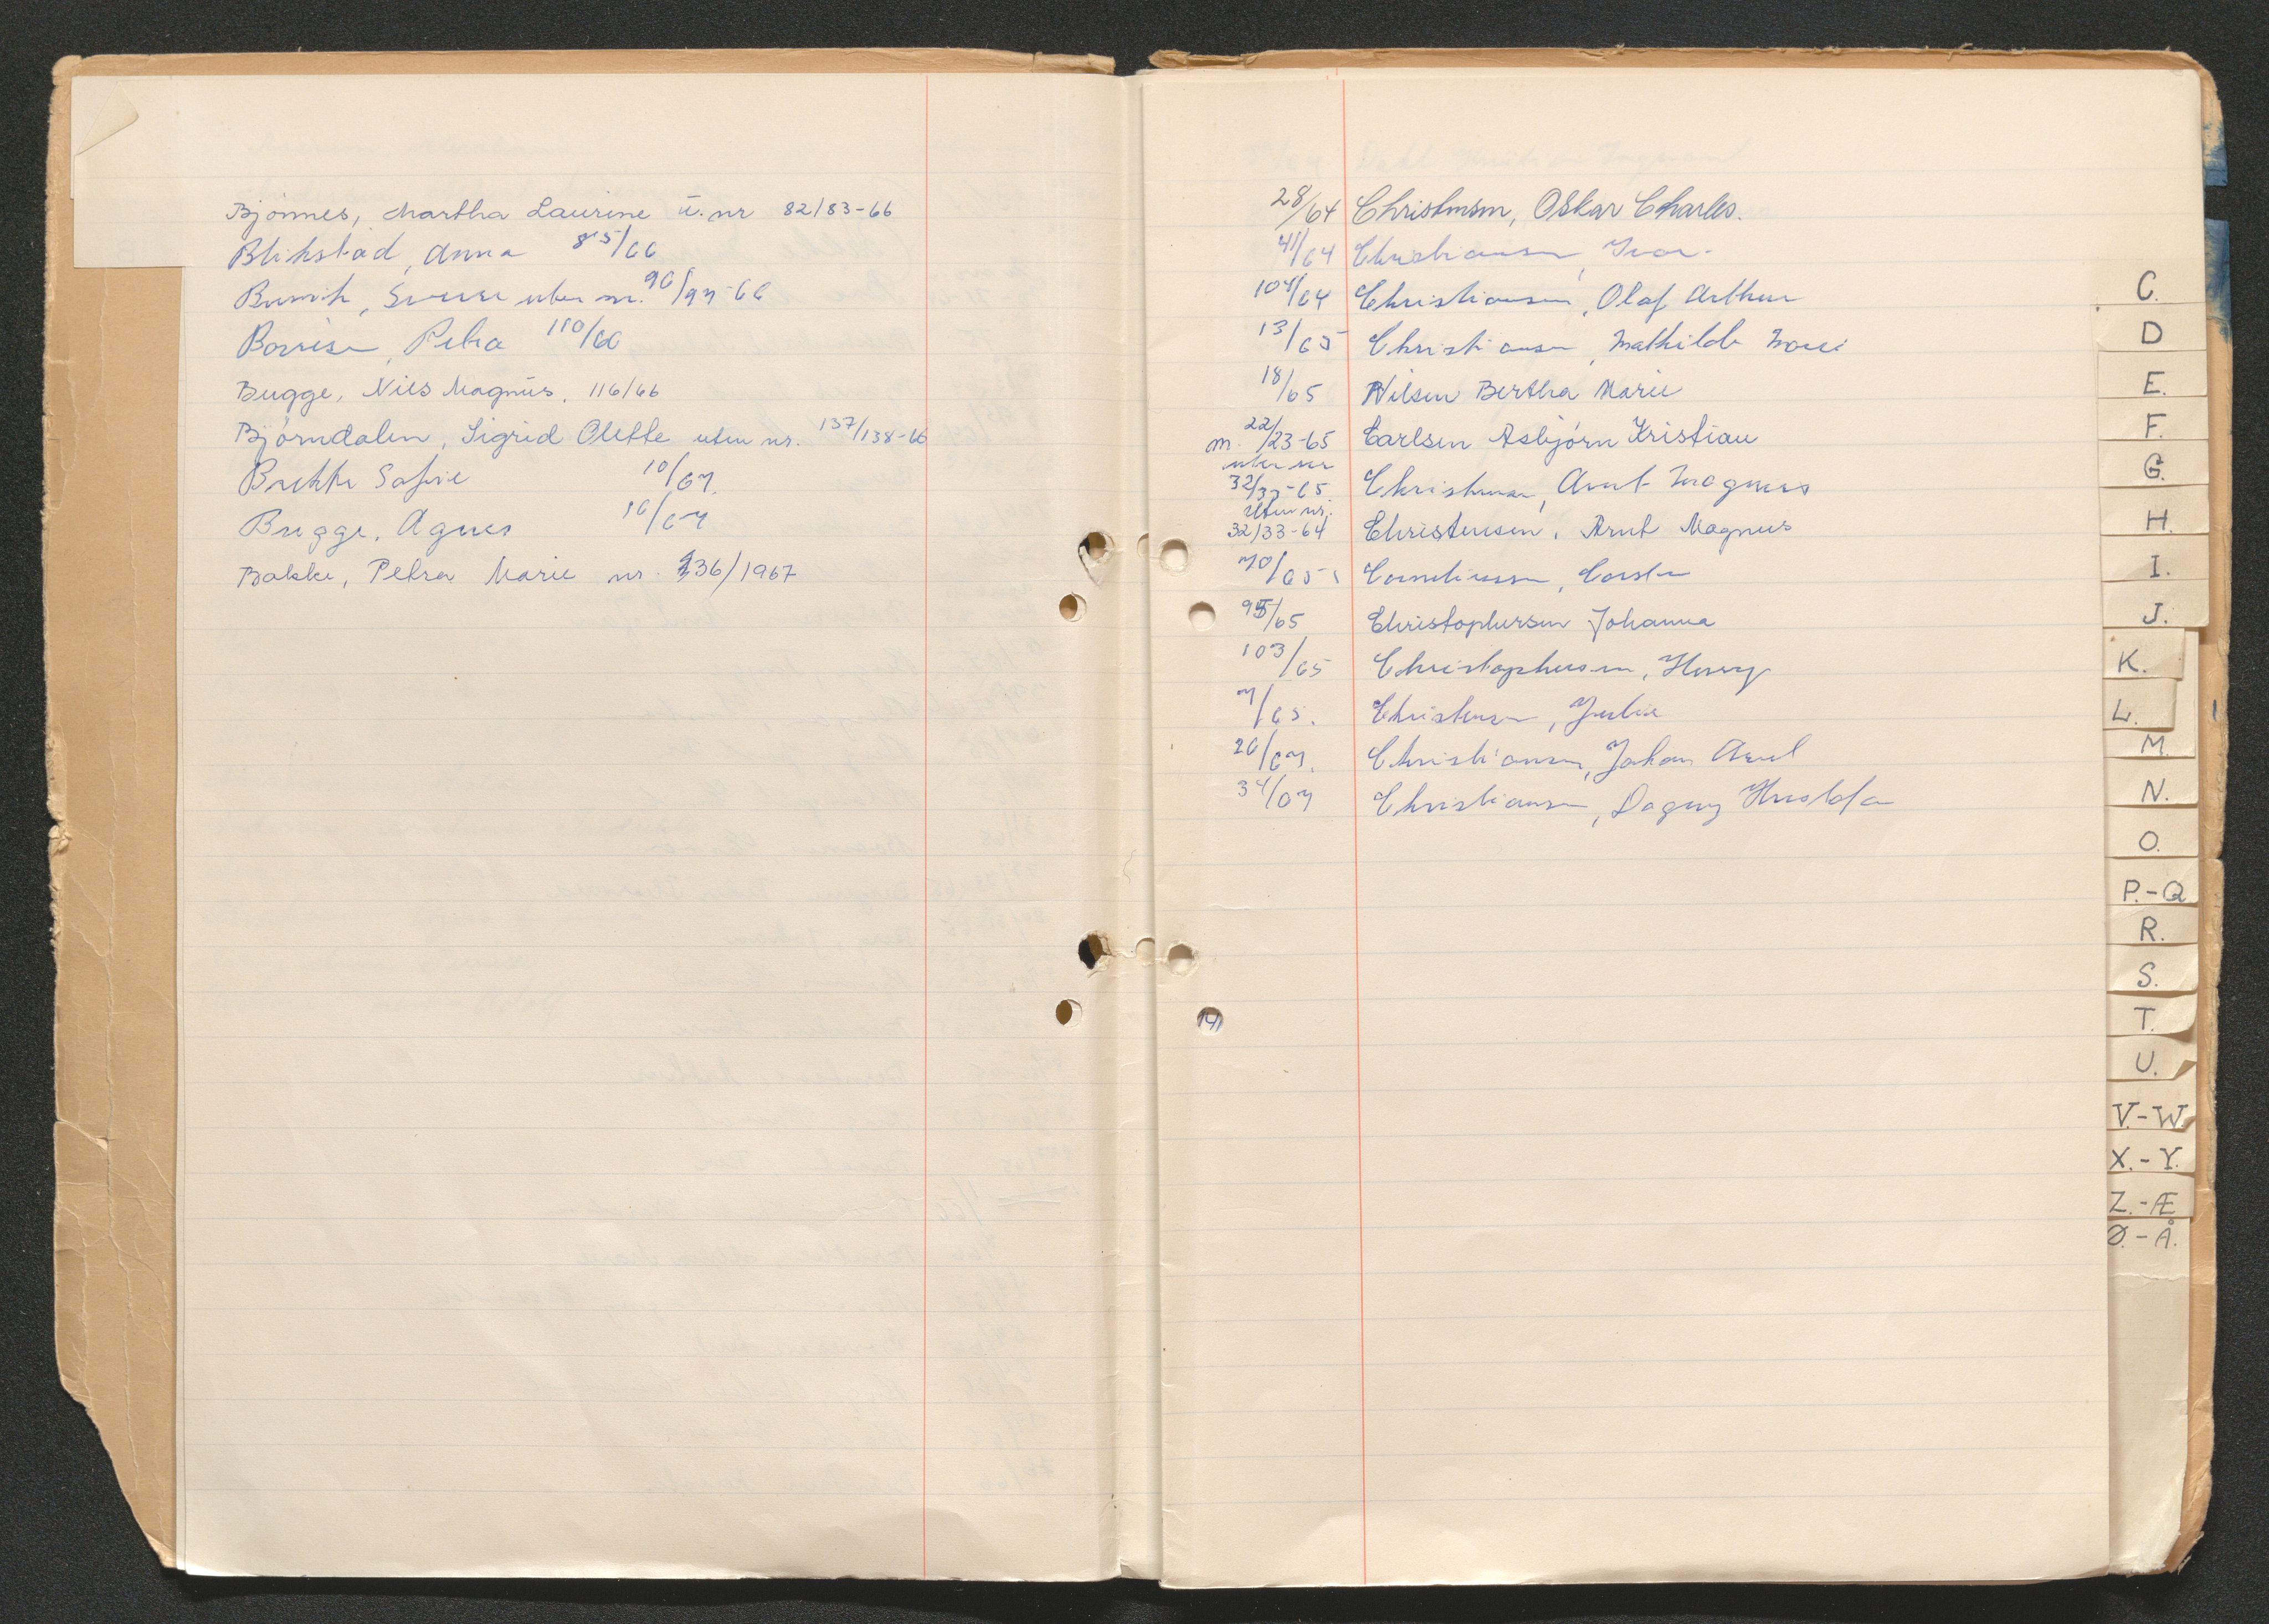 Bjønnes, Martha Laurine u. nr 82/83-66
Blikstad, Anna 85/66
Sverre uten nr. 96/97-66
Petra 110/66
Bugge, Nils Magnus. 116/66
Bjørndalen, Sigrid Olette uten nr. 137/138-66
Safie 10/67.
Brügge, Agnes 16/67
Bakke, Petra Marie nr. 136/1967
28/64 Christensen, Oskar Charles.
41/64 Christiansen, Ivar.
104/64 Christiansen, Olaf Arthur
13/65 Christiansen, Mathilde
18/65 Nilsen Bertha Marie
22/23-65 Carlsen Asbjørn Kristian
uten nr
32/33-65. Christensen, Arnt Magnus
Uten nr.
32/33-64 Christensen, Arnt Magnus
70/65 Corneliussen,
95/65 Christophersen Johanna
103/65 Christophersen, Henry
7/65. Christensen, Julie
26/67. Christiansen, Johan
34/67 Christiansen, Dagny
C.
D
E.
F.
G.
H.
I.
J.
K.
L.
M.
N.
O.
P.-Q
R.
S.
T.
U.
V.-W.
X.-Y.
Z.-Æ
Ø.-Å.